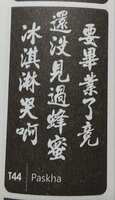 要畢業了竟
還沒見過蜂蜜
冰淇淋哭啊
T44 | Paskha